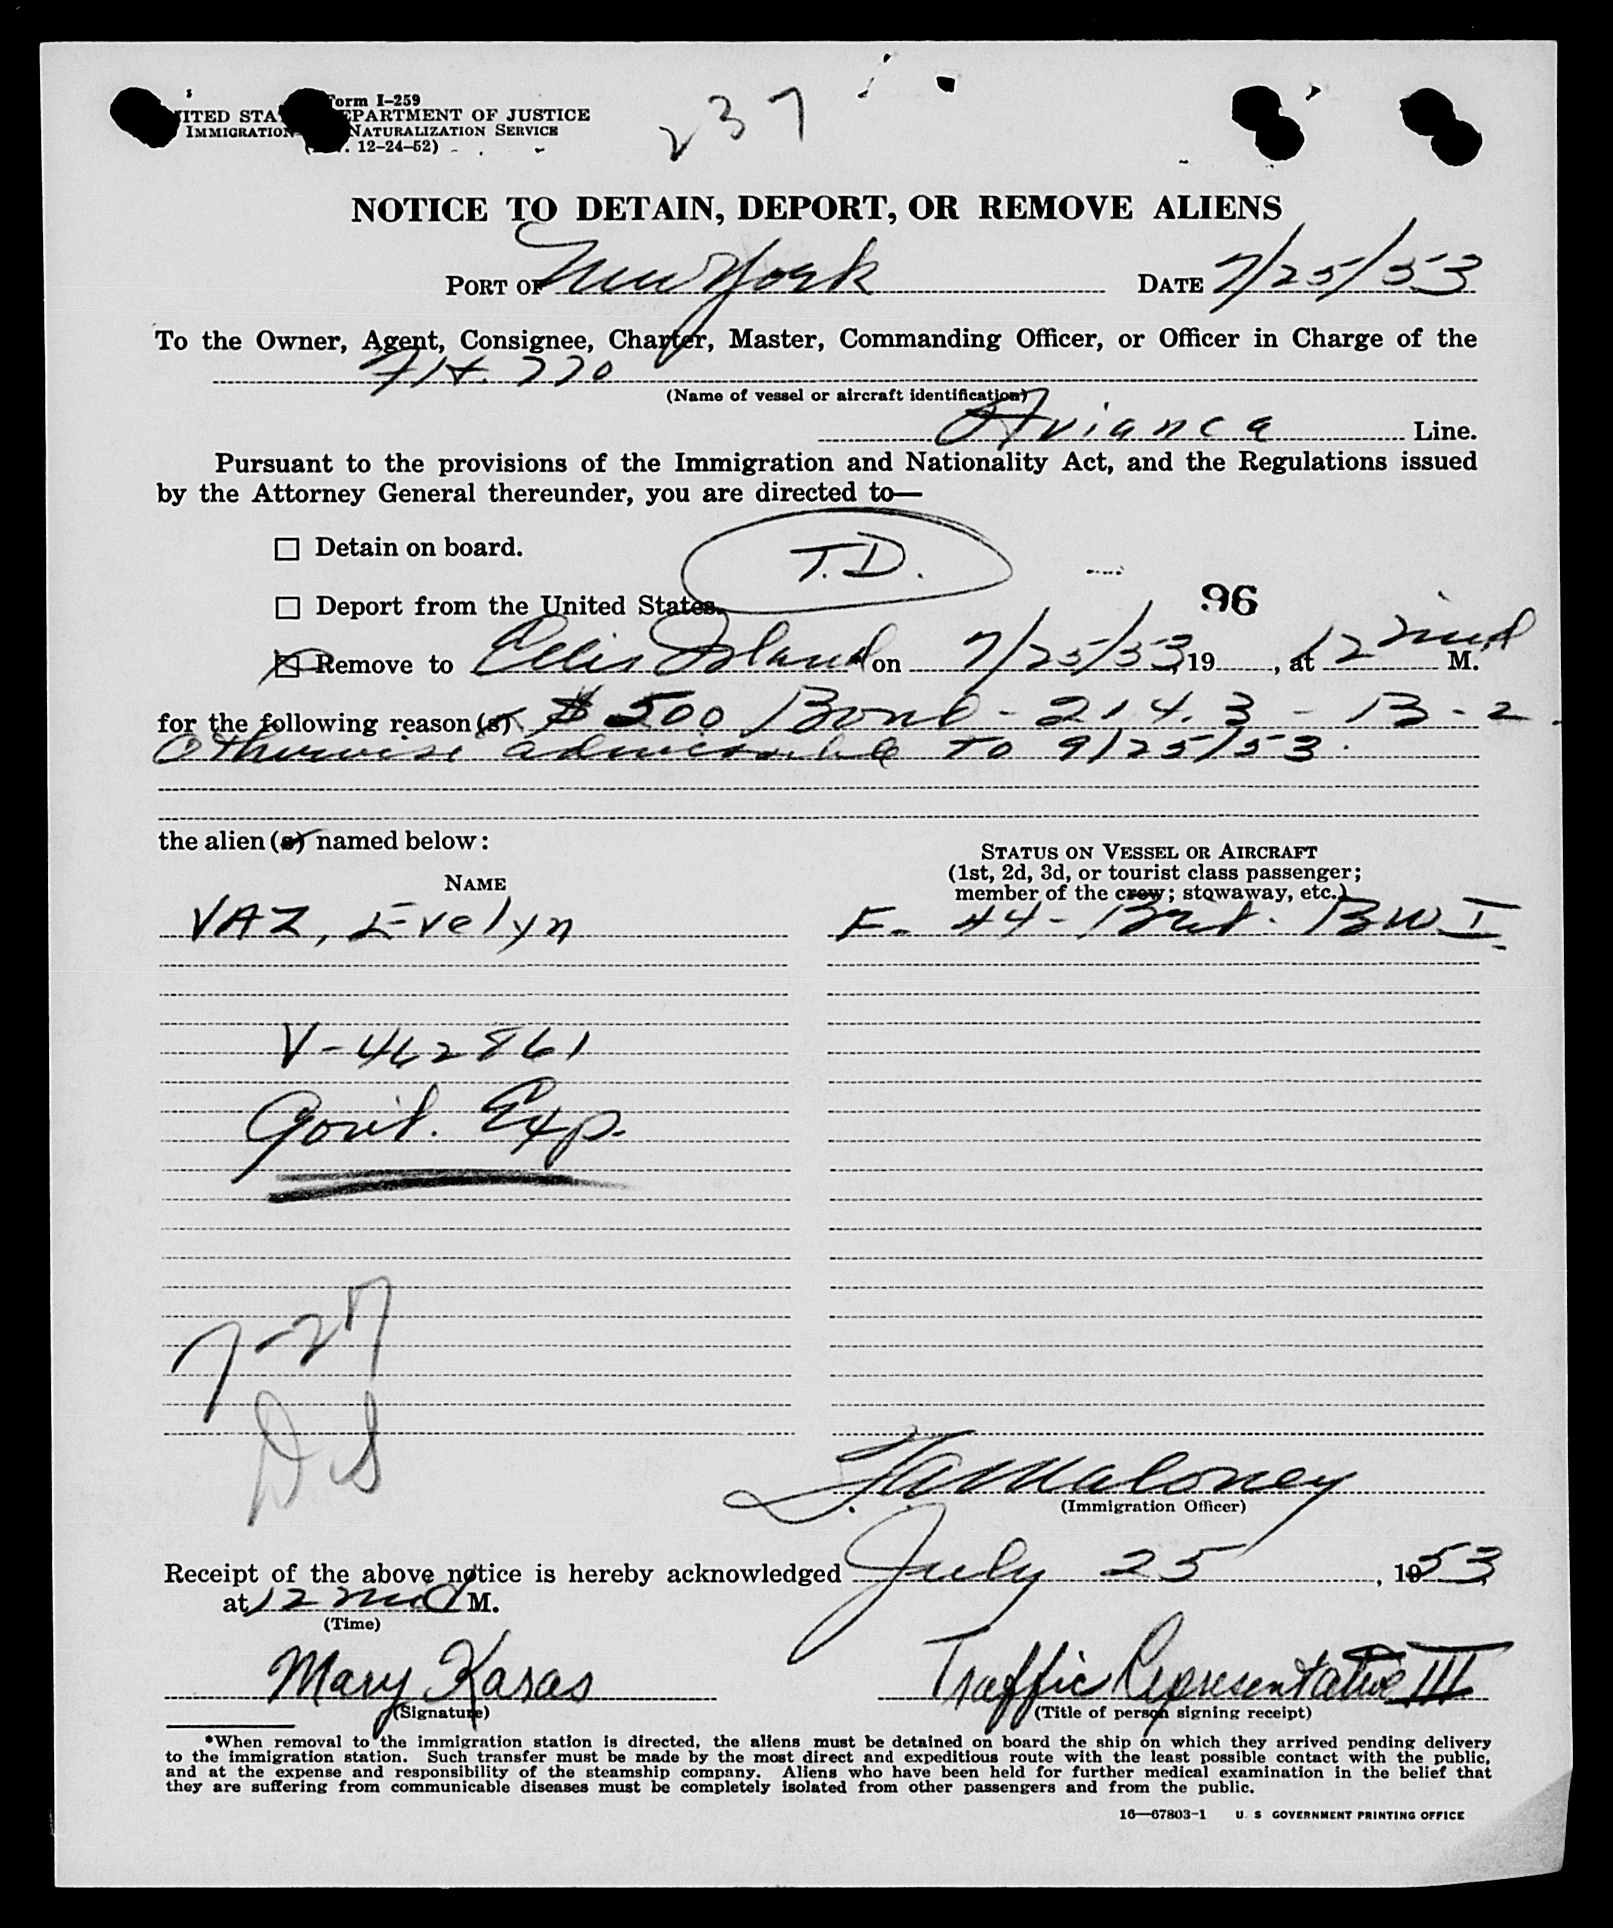 Form I-259
UNITED STA EPARTMENT OF JUSTICE
IMMIGRATION NATURALIZATION SERVICE
. 12-24-52)
237
NOTICE TO DETAIN, DEPORT, OR REMOVE ALIENS
PORT OF New York DATE 7/25/53
To the Owner, Agent, Consignee, Charter, Master, Commanding Officer, or Officer in Charge of the
Flt. 770
(Name of vessel or aircraft identification)
Avianca Line.
Pursuant to the provisions of the Immigration and Nationality Act, and the Regulations issued
by the Attorney General thereunder, you are directed to—
☐ Detain on board.
T.D.
☐ Deport from the United States.
96
☒ Remove to Ellis Island on 7/25/53, 19, at 12 mid M.
for the following reason(s) $500 Bond - 214.3 - B-2.
Otherwise admissible to 9/25/53.
the alien(s) named below:
STATUS ON VESSEL OR AIRCRAFT
(1st, 2d, 3d, or tourist class passenger;
member of the crew; stowaway, etc.)
NAME
VAZ, Evelyn F. 44 - Brit. BWI
V-462861
Gov't. Exp.
7-27
DS
Maloney
(Immigration Officer)
Receipt of the above notice is hereby acknowledged July 25, 1953,
at 12 mid M.
(Time)
Mary Kasas Traffic Representative III
(Signature) (Title of person signing receipt)
*When removal to the immigration station is directed, the aliens must be detained on board the ship on which they arrived pending delivery
to the immigration station. Such transfer must be made by the most direct and expeditious route with the least possible contact with the public,
and at the expense and responsibility of the steamship company. Aliens who have been held for further medical examination in the belief that
they are suffering from communicable diseases must be completely isolated from other passengers and from the public.
16—67803-1 U S GOVERNMENT PRINTING OFFICE